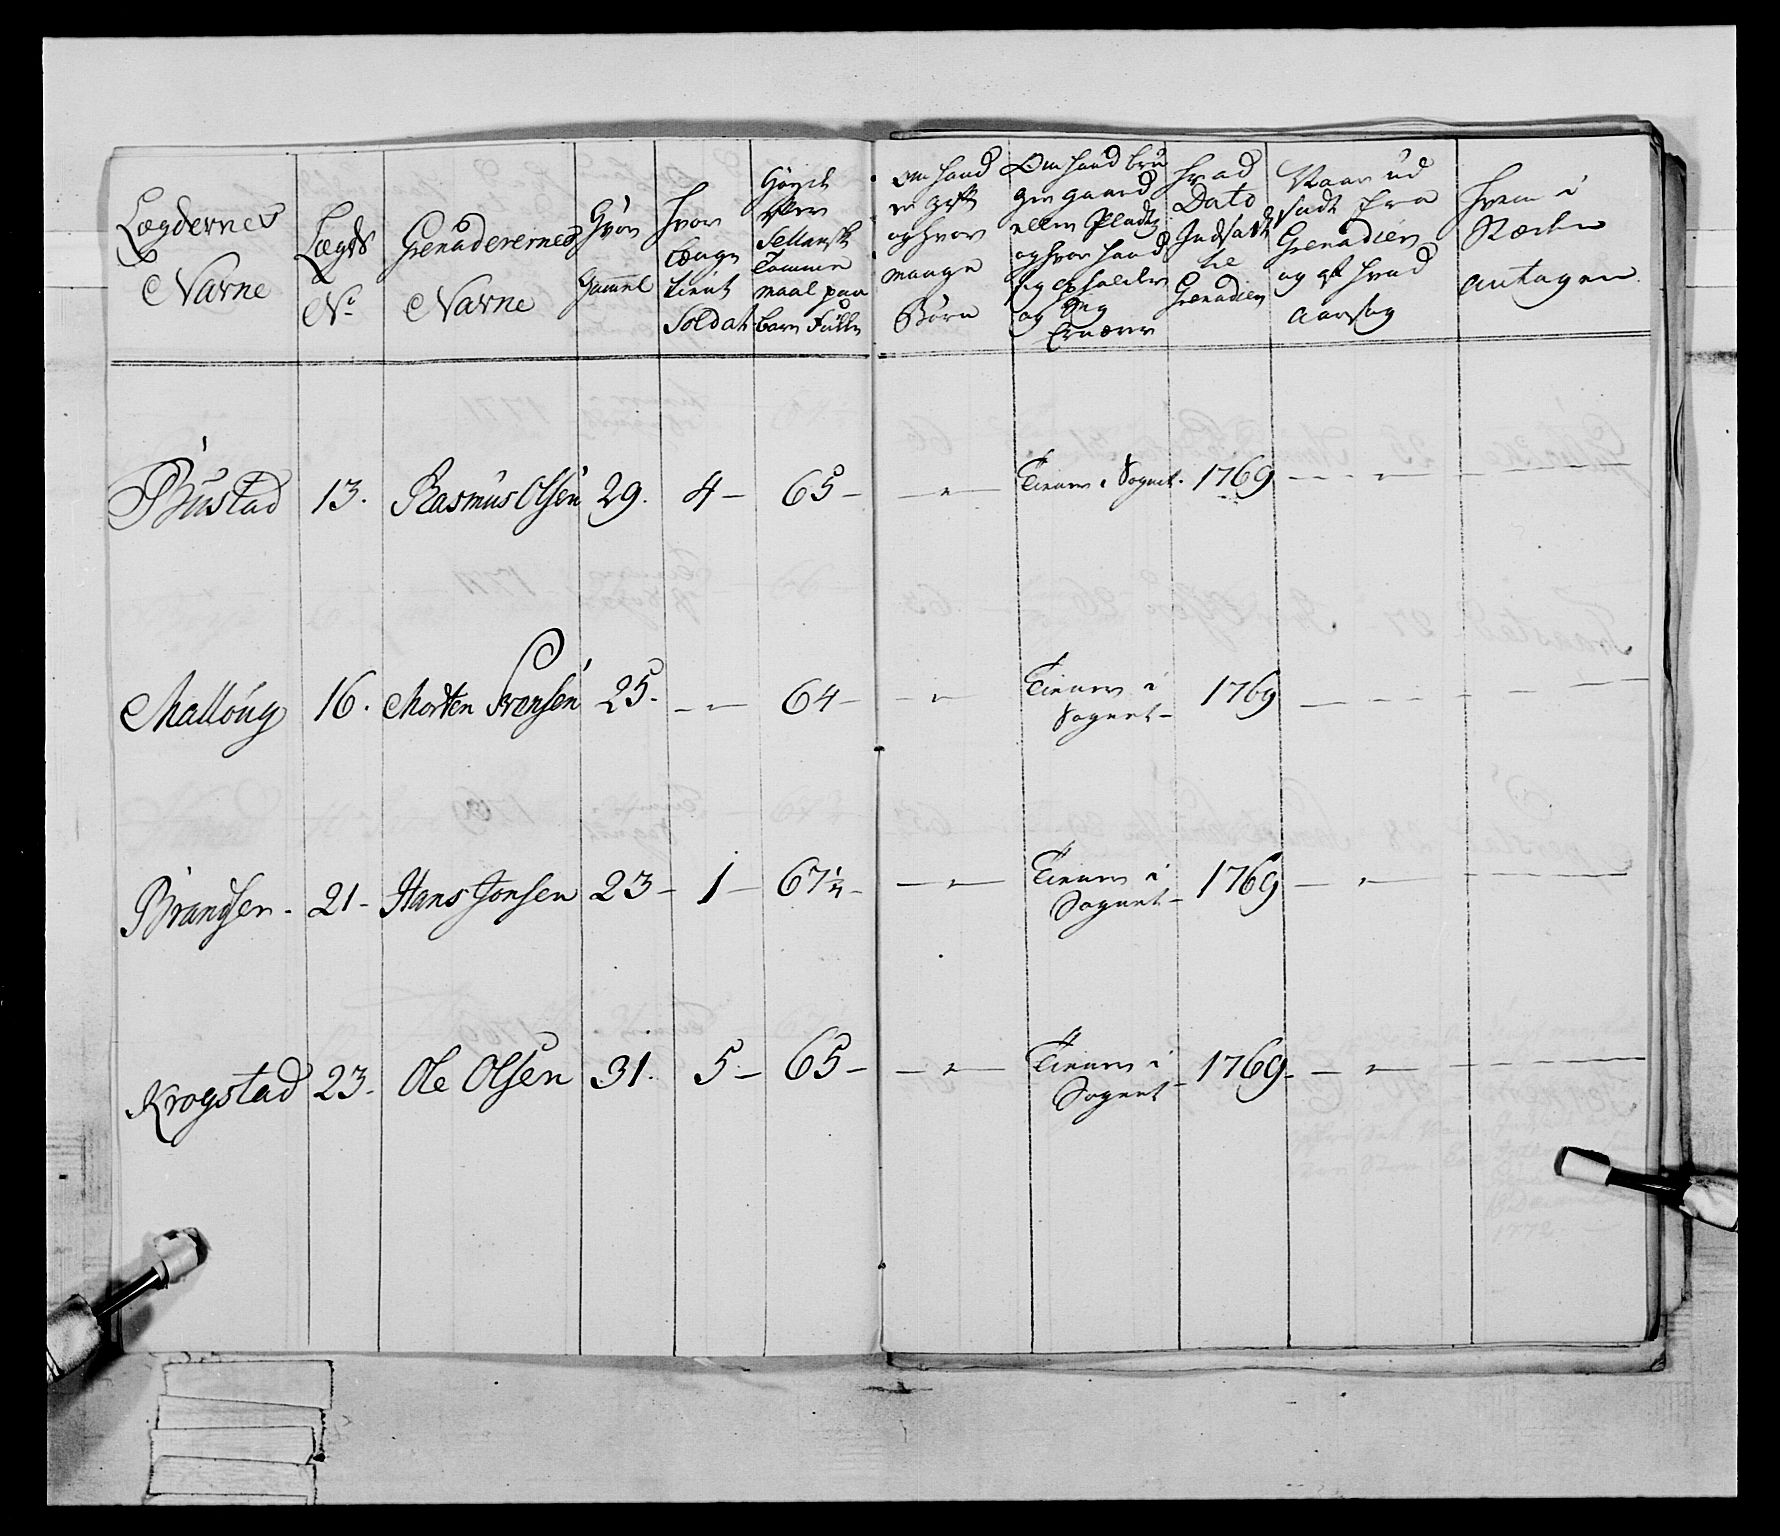 Lægdernes
Navne
Lægds
No.
Grenaderernes
Navne
Hvor
Gammel
Hvor
længe
tient
Soldat
Høyde
efter
Sellansk
Tomme
maal paa
bare Fødder
Om hand
er gift
og hvor
mange
Børn
Om hand bru
ger gaard
eller Pladtz
og hvor hand
sig opholder
og sig
Ernærer
Hvad
Dato
Indsadt
til
Grenadier
Naar ud
sadt fra
Grenadier
og af hvad
Aarsag
Hvem i
Stæden
antagen
Bustad 13. Rasmus Olsen 29. 4 – 65 – – " – Tiener i Sognet. 1769 – – " – –
Mallóug 16. Morten Svensen 25. – – 64 – " – Tiener i
Sognet – 1769 – – – – –
Brandsen. 21 – Hans Jonsen 23 – 1 – 67 1/4 – – " – Tiener i
Sognet – 1769 – " – –
Krogstad 23. Ole Olsen 31. 5 – 65 – – " – Tiener i
Sognet – 1769. – " – –